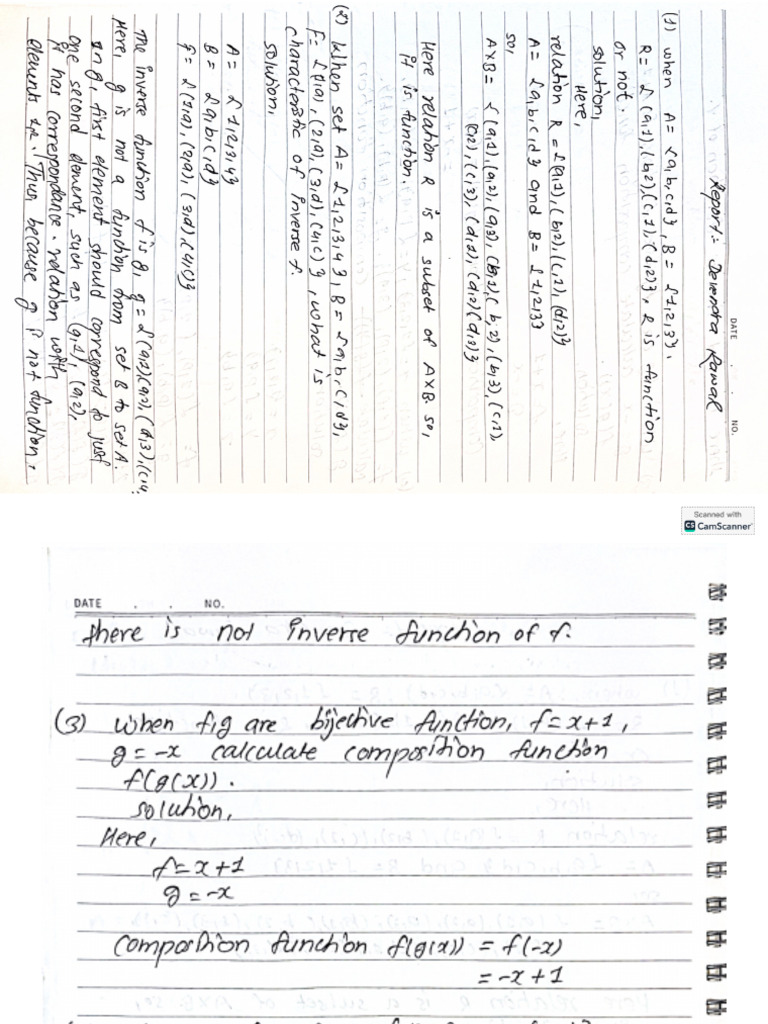 DATE . . NO.
Report:- Devendra Rawal
(1) when A= {a,b,c,d}, B= {1,2,3}.
R= {(a,1),(b,2),(c,1),(d,2)}, R is function
or not.
solution,
Here,
relation R = {(a,1), (b,2), (c,1), (d,2)}
A= {a,b,c,d} and B= {1,2,3}
so,
A×B= {(a,1),(a,2),(a,3),(b,1),(b,2),(b,3),(c,1),
(c,2),(c,3),(d,1),(d,2)(d,3)}
Here relation R is a subset of A×B. so,
it is function.
(2) When set A= {1,2,3,4}, B= {a,b,c,d},
f= {(1,a), (2,a), (3,d), (4,c)}, what is
characteristic of inverse f.
solution,
A= {1,2,3,4}
B= {a,b,c,d}
f= {(1,a), (2,a), (3,d), (4,c)}
The inverse function f is g, g= {(a,1)(a,2), (d,3),(c,4,
Here, g is not a function from set B to set A.
In g, first element should correspond to just
one second element, such as (a,1), (a,2),
it has correspondance relation with
elements 1,2. Thus because g is not function,
Scanned with
CS CamScanner
DATE . . NO.
there is not inverse function of f.
(3) when f,g are bijective function, f=x+1,
g=-x calculate composition function
f(g(x)).
solution,
Here,
f=x+1
g=-x
composition function f(g(x)) = f(-x)
= -x+1